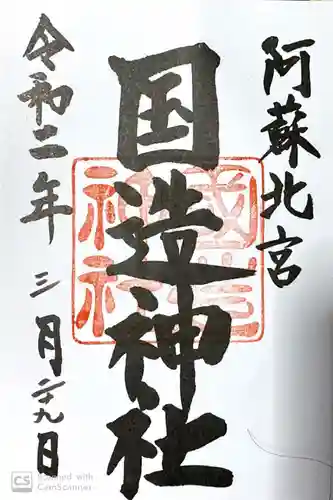 阿蘇北宮
国造神社
國造神社
令和二年三月廿九日
CS Scanned with CamScanner